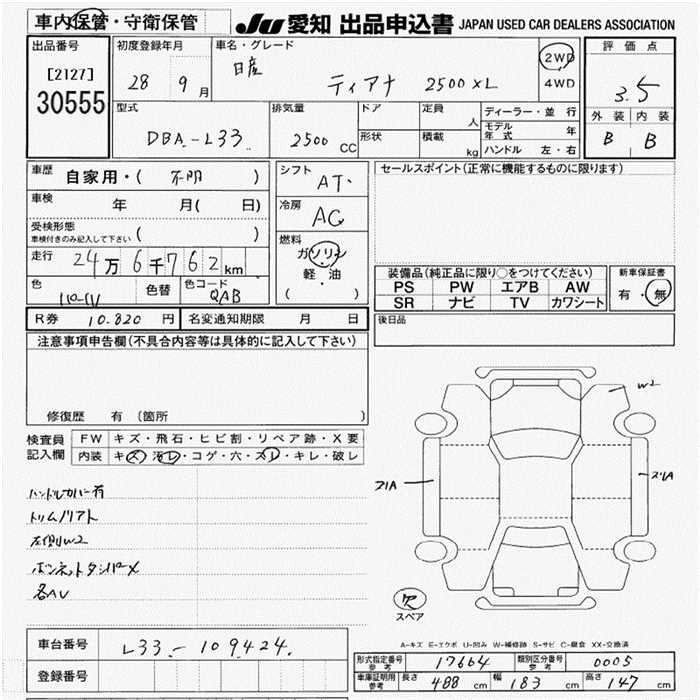 車内保管・守衛保管
JU 愛知 出品申込書 JAPAN USED CAR DEALERS ASSOCIATION
出品番号
[2127]
30555
初度登録年月
28 9 月
車名・グレード
日産 ティアナ 2500 XL
2WD
4WD
評価点
3.5
外装 内装
B B
型式
DBA-L33
排気量
2500 CC
ドア
形状
定員
人
積載
kg
ディーラー・並行
モデル年式 年
ハンドル 左・右
車歴
自家用・( 不明 )
車検 年 月( 日)
受検形態
車検付きのみ記入して下さい ( )
走行 24万6千762km
色 色替
色コード
QAB
シフト
AT
冷房
AC
燃料
ガソリン
軽・油
( )
セールスポイント(正常に機能するものに限ります)
装備品(純正品に限り○をつけてください)
PS PW エアB AW
SR ナビ TV カワシート
新車保証書
有・無
R券 10.820 円
名変通知期限 月 日
後日品
注意事項申告欄(不具合内容等は具体的に記入して下さい)
修復歴 有 (箇所 )
検査員
記入欄
FW キズ・飛石・ヒビ割・リペア跡・X要
内装 キズ・汚レ・コゲ・穴・スレ・キレ・破レ
ハンドルカバー有
左側W2
各AU
W2
欠
スペア
A-キズ E-エクボ U-凹み W-補修跡 S-サビ C-腐食 XX-交換済
車台番号
L33-109424
登録番号
形式指定番号
参考
17664
類別区分番号
参考
0005
車庫証明用
参考
長さ 488 cm 幅 183 cm 高さ 147 cm